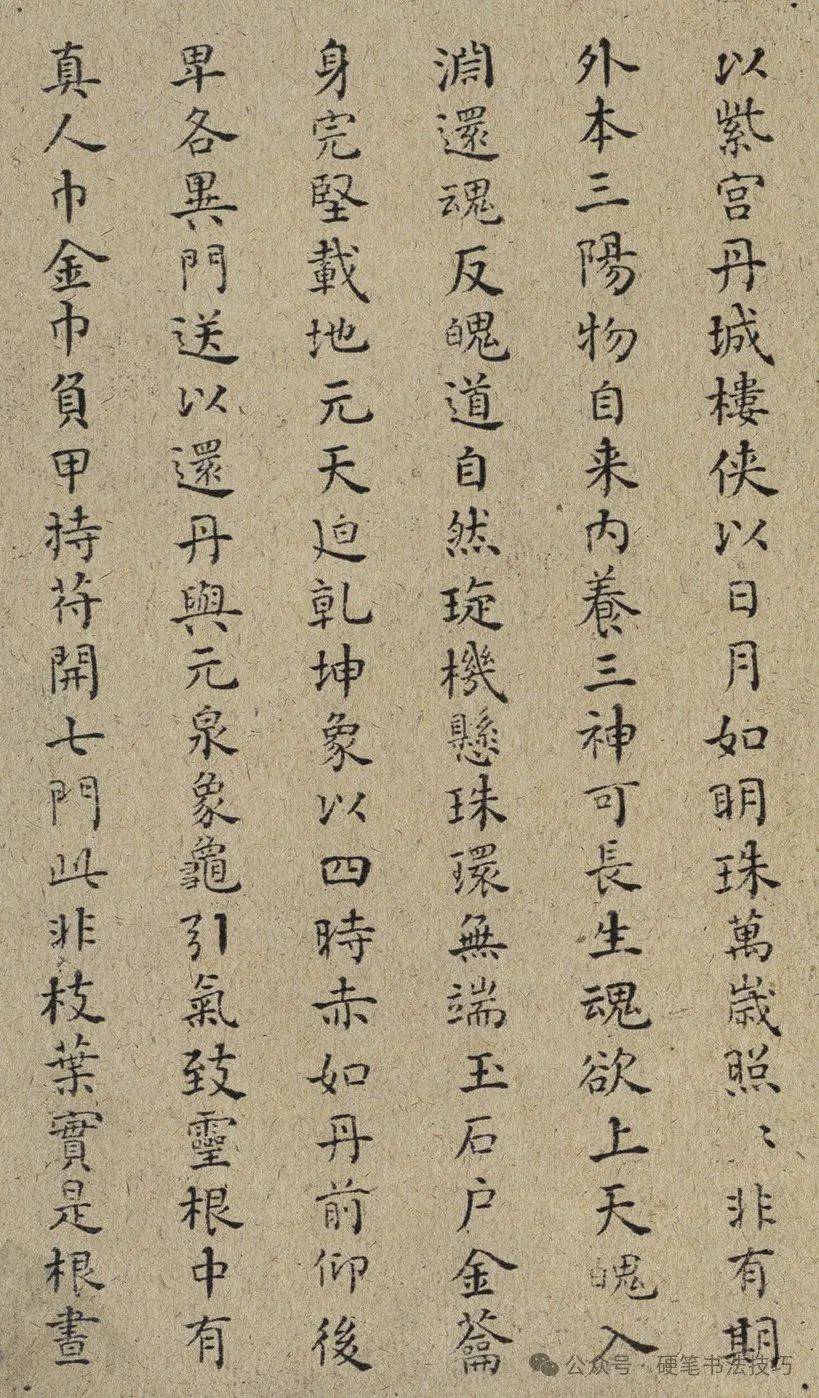 以紫宫丹城樓侠以日月如明珠萬歲照〻非有期
外本三陽物自来内養三神可長生魂欲上天魄入
淵還魂反魄道自然琁機懸珠環無端玉石户金籥
身完堅載地元天迫乹坤象以四時赤如丹前仰後
卑各異門送以還丹與元泉象龜引氣致靈根中有
真人巾金巾負甲持苻開七門此非枝葉實是根晝
公众号·硬笔书法技巧